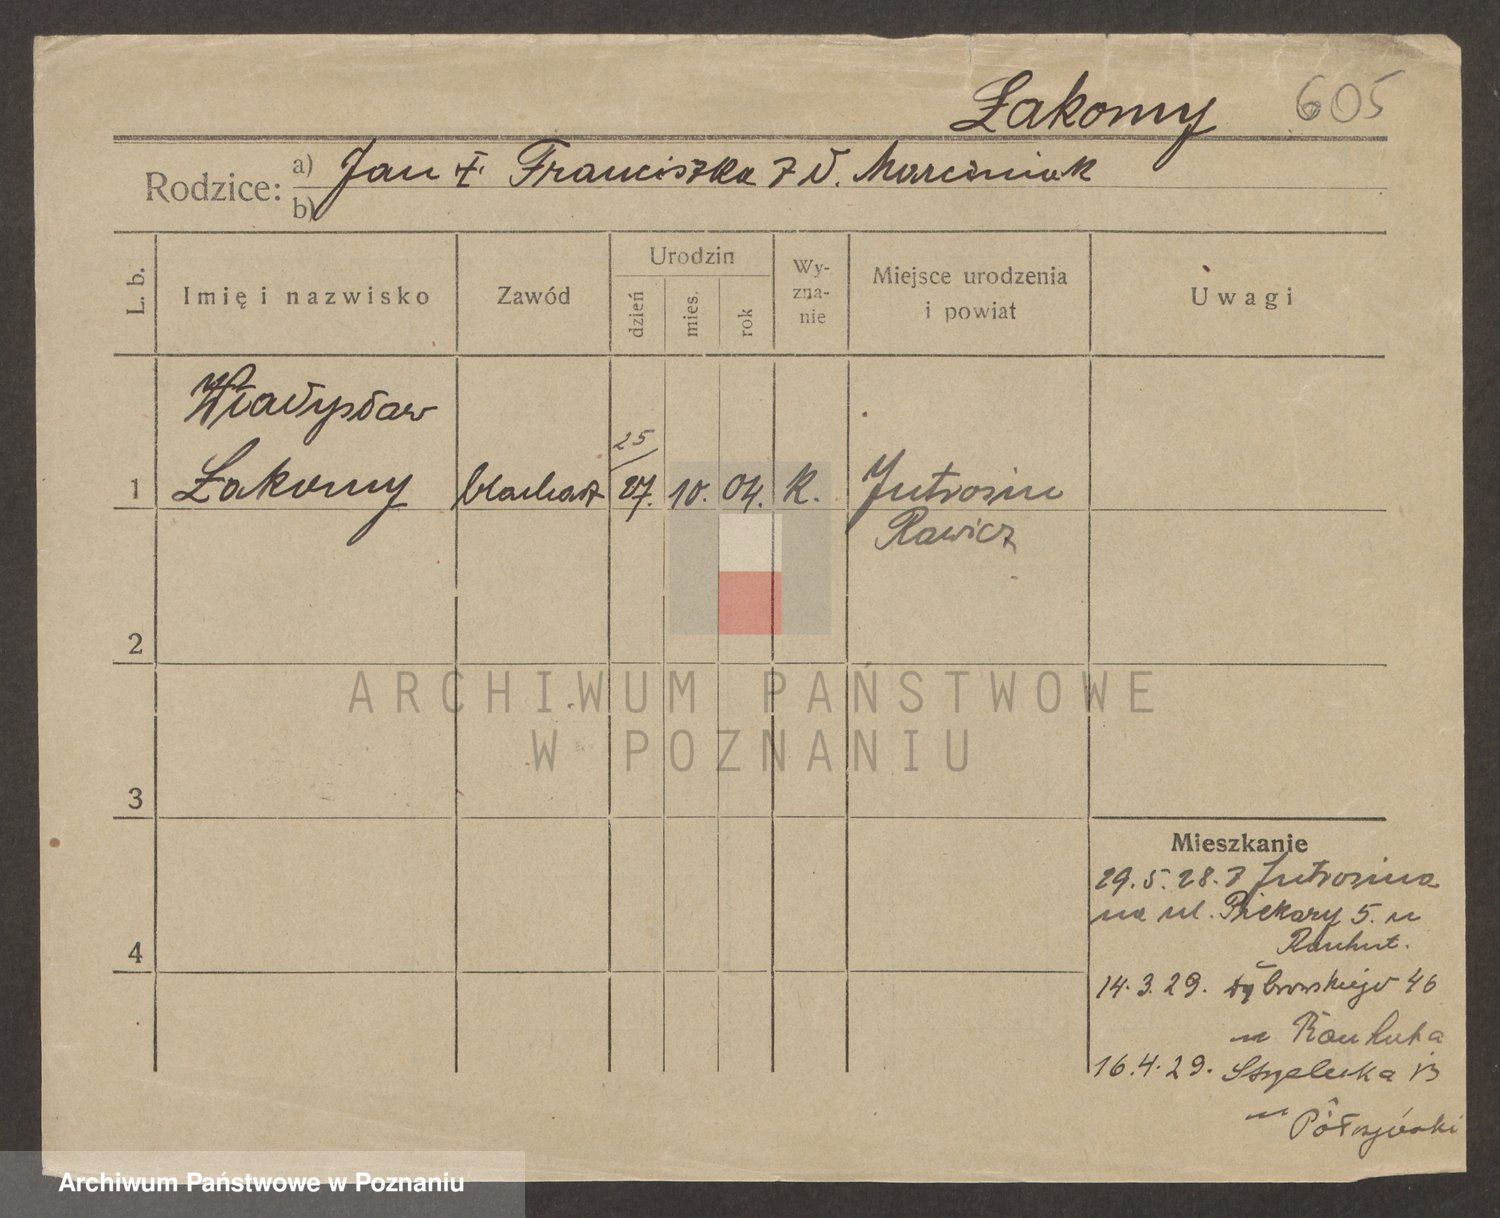 Łakomy 605
Rodzice: a) Jan †. Franciszka z d. Marciniak
b)
L. b. Imię i nazwisko Zawód Urodzin dzień mies. rok Wy-zna-nie Miejsce urodzenia i powiat Uwagi
Władysław
25
1 Łakomy blacharz 27. 10. 04. k. Jutrosin
Rawicz
2
ARCHIWUM PAŃSTWOWE
W POZNANIU
3
Mieszkanie
29.5.28. z Jutrosina
na ul. Piekary 5. u
Rauhut.
4
14.3.29. Dąbrowskiego 46
u Rauhuta
16.4.29. Strzelecka
u
Archiwum Państwowe w Poznaniu